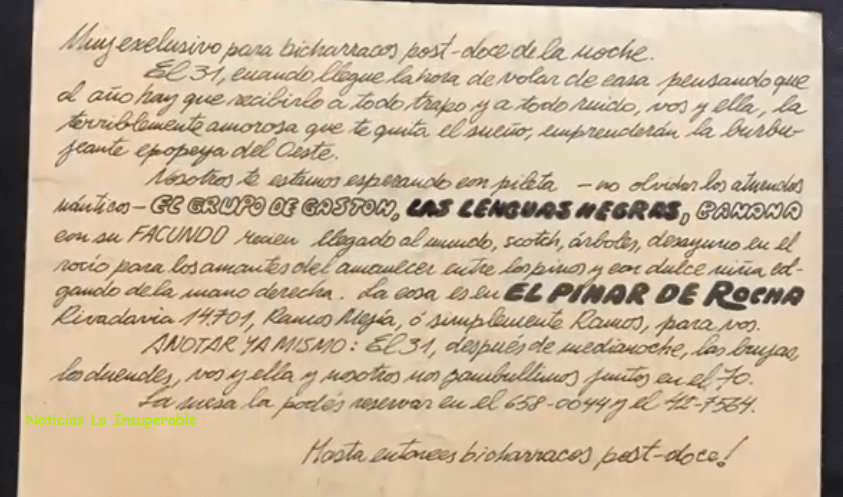 Muy exclusivo para bicharracos post-doce de la noche.
El 31, cuando llegue la hora de volar de casa pensando que
al año hay que recibirlo a todo trapo y a todo ruido, vos y ella, la
terriblemente amorosa que te quita el sueño, emprenderán la burbu-
jeante epopeya del Oeste.
Nosotros te estamos esperando con pileta - no olvidar los atuendos
náuticos - EL GRUPO DE GASTON, LAS LENGUAS NEGRAS, BANANA
con su FACUNDO recien llegado al mundo, scotch, árboles, desayuno en el
rocío para los amantes del amanecer entre los pinos y con dulce niña col-
gando de la mano derecha. La cosa es en EL PINAR DE ROCHA
Rivadavia 14.701, Ramos Mejía, ó simplemente Ramos, para vos.
ANOTAR YA MISMO: El 31, después de medianoche, las brujas,
los duendes, vos y ella y nosotros nos zambullimos juntos en el 70.
La mesa la podés reservar en el 658-0044 y el 42-7564.
Noticias La Insuperable
Hasta entonces bicharracos post-doce!